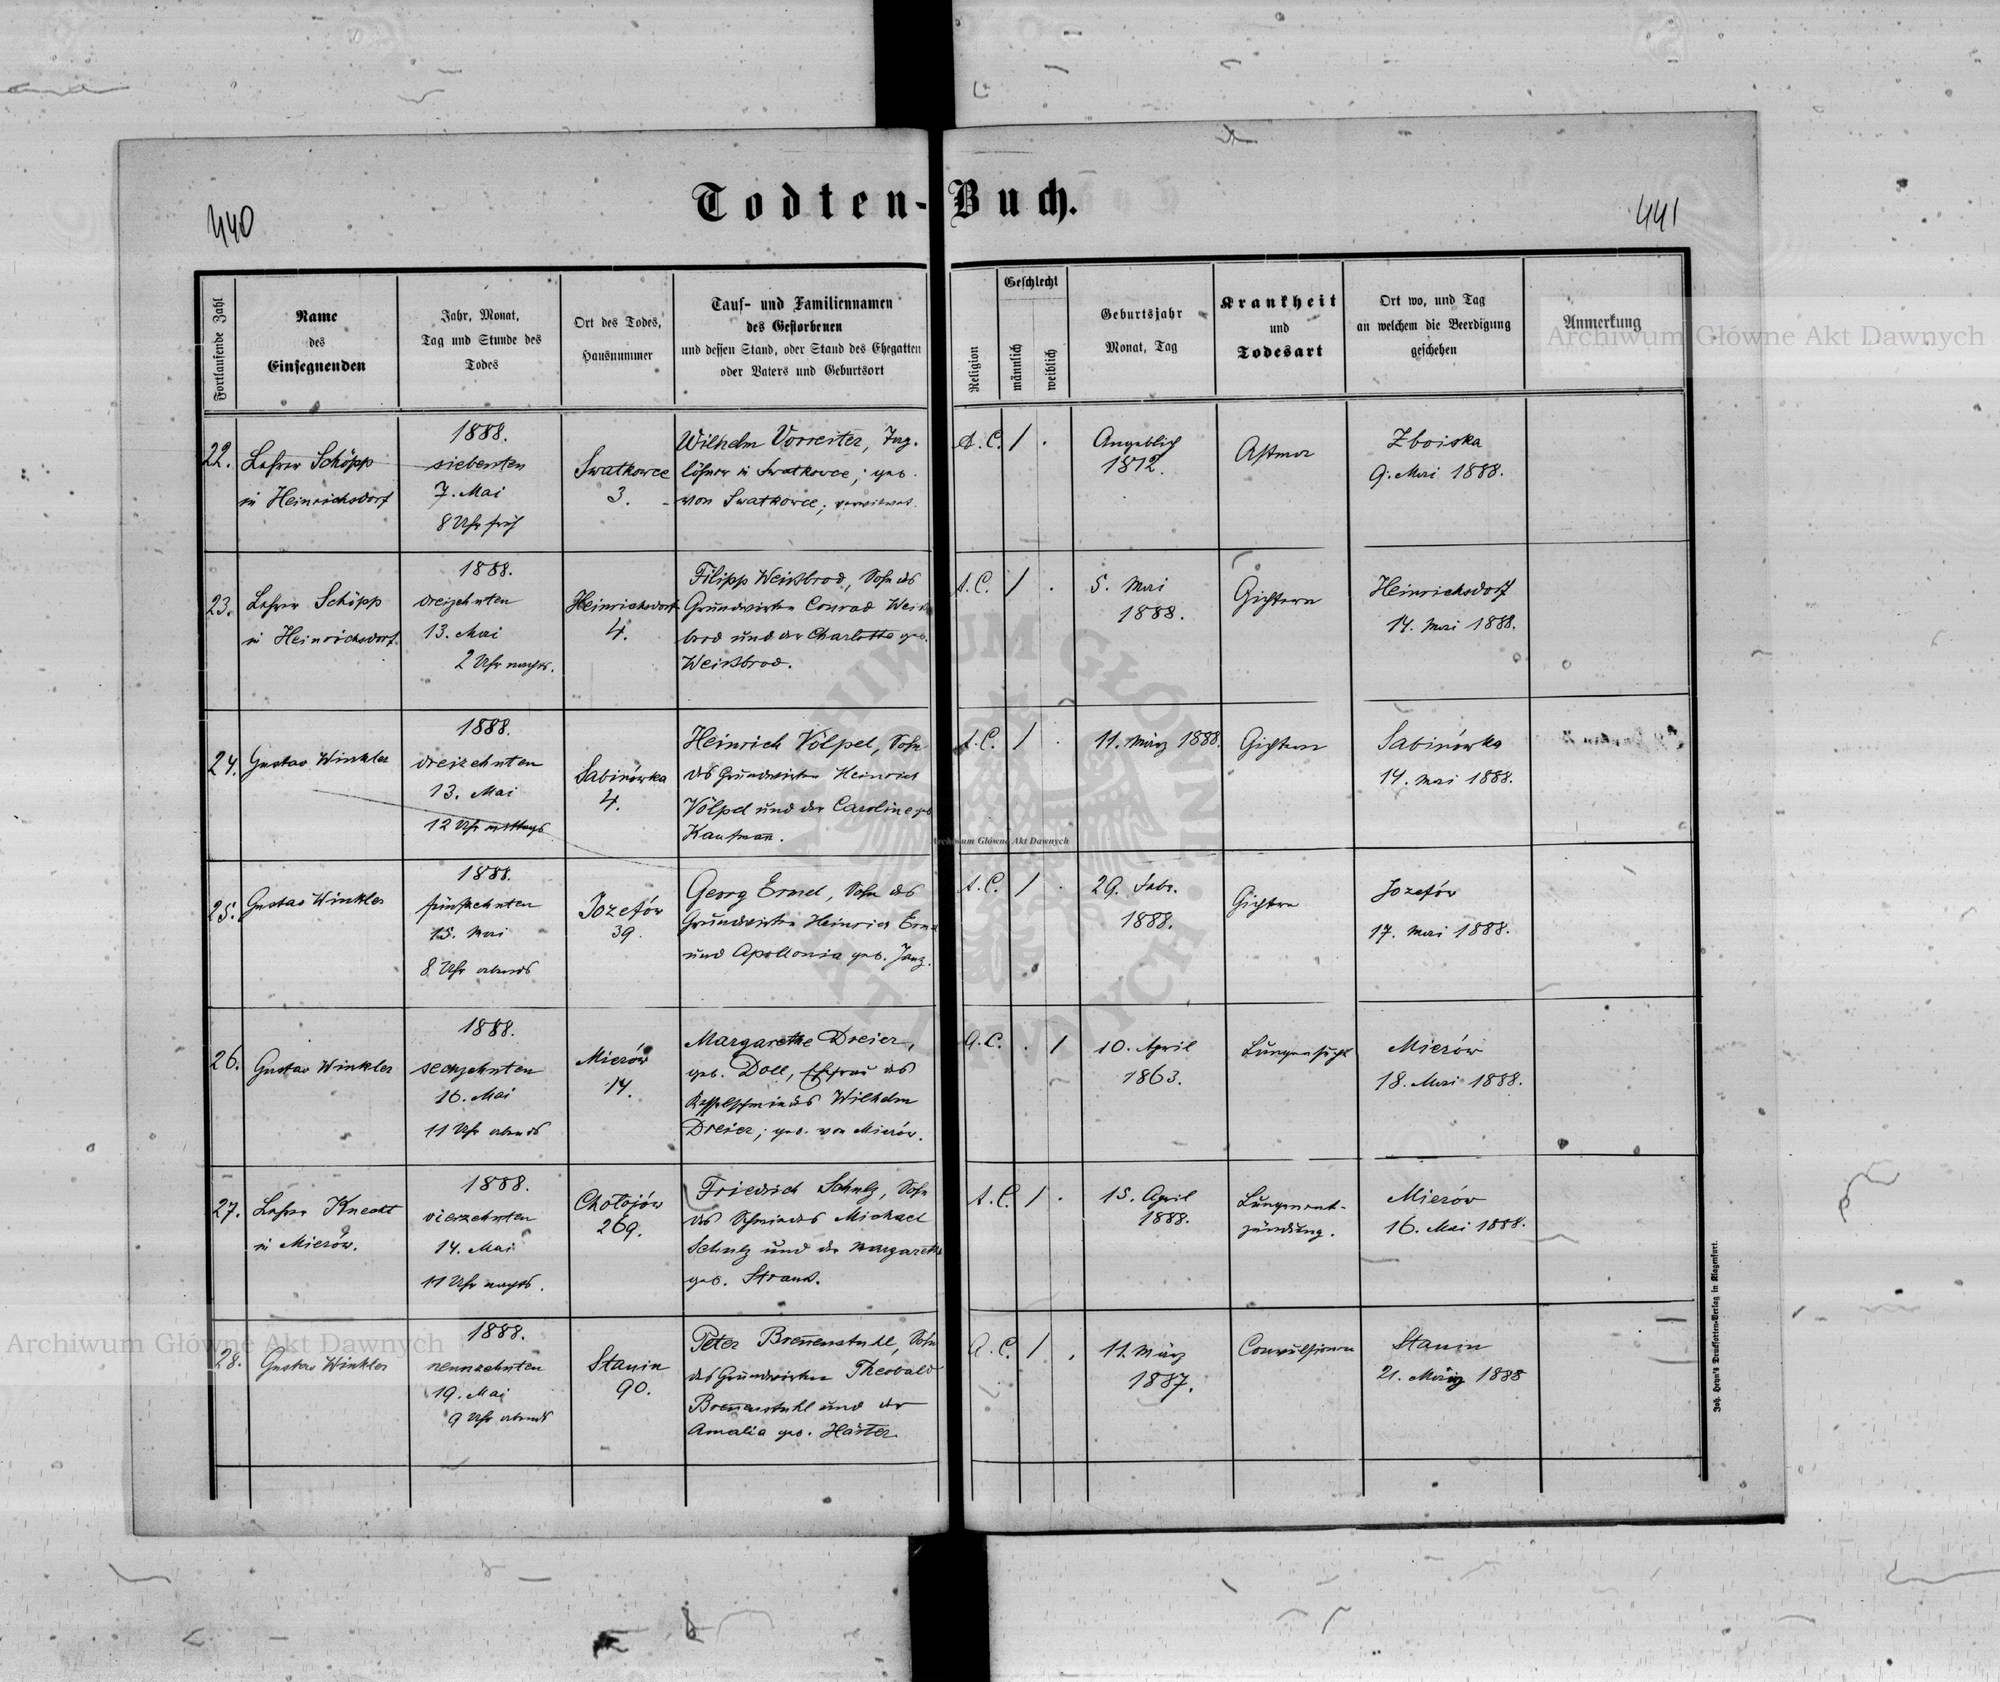 Todten-Buch.
440
441
Fortlaufende Zahl
Name
des
Einsegnenden
Jahr, Monat,
Tag und Stunde des
Todes
Ort des Todes,
Hausnummer
Tauf- und Familiennamen
des Gestorbenen
und dessen Stand, oder Stand des Ehegatten
oder Vaters und Geburtsort
Religion
Geschlecht
männlich
weiblich
Geburtsjahr
Monat, Tag
Krankheit
und
Todesart
Ort wo, und Tag
an welchem die Beerdigung
geschehen
Anmerkung
22.
Lehrer Schöpp
in Heinrichsdorf
1888.
siebenten
7. Mai
8 Uhr früh
Swatkowce
3.
Wilhelm Vorreiter, Tag-
löhner in Swatkowce; geb.
von Swatkowce; verwitwet.
A. C.
/
.
Angeblich
1812.
Astma
Zboiska
9. Mai 1888.
23.
Lehrer Schöpp
in Heinrichsdorf.
1888.
dreizehnten
13. Mai
2 Uhr nachts.
Heinrichsdorf
4.
Filipp Weißbrod, Sohn des
Grundwirten Conrad Weiß-
brod und der Charlotte geb.
Weißbrod.
A. C.
/
.
5. Mai
1888.
Gichtern
Heinrichsdorf
14. Mai 1888.
24.
Gustav Winkler
1888.
dreizehnten
13. Mai
12 Uhr mittags
Sabinówka
4.
Heinrich Völpel, Sohn
des Grundwirten Heinrich
Völpel und der Caroline geb.
Kaufman̄.
A. C.
/
.
11. März 1888.
Gichtern
Sabinówka
14. Mai 1888.
25.
Gustav Winkler
1888.
fünfzehnten
15. Mai
8 Uhr abends
Jozefów
39.
Georg Ernel, Sohn des
Grundwirten Heinrich Ernel
und Apollonia geb. Jang.
A. C.
/
.
29. Febr.
1888.
Gichtern
Jozefów
17. Mai 1888.
26.
Gustav Winkler
1888.
sechzehnten
16. Mai
11 Uhr abends
Mierów
14.
Margarethe Dreier,
geb. Doll, Ehefrau des
Kesselschmiedes Wilhelm
Dreier; geb. von Mierów.
A. C.
.
/
10. April
1863.
Lungensucht
Mierów
18. Mai 1888.
27.
Lehrer Knecht
in Mierów.
1888.
vierzehnten
14. Mai
11 Uhr nachts.
Chołojów
269.
Friedrich Schulz, Sohn
des Schmiedes Michael
Schulz und der Margarethe
geb. Strauß.
A. C.
/
.
15. April
1888.
Lungenent-
zündung.
Mierów
16. Mai 1888.
28.
Gustav Winkler
1888.
neunzehnten
19. Mai
9 Uhr abends
Stanin
90.
Peter Breñenstuhl, Sohn
des Grundwirten Theobald
Breñenstuhl und der
Amalia geb. Härter
A. C.
/
.
11. März
1887.
Convulsionen
Stanin
21. März 1888
Joh. Heyn's Drucksorten-Verlag in Klagenfurt.
Archiwum Główne Akt Dawnych
Archiwum Główne Akt Dawnych
Archiwum Główne Akt Dawnych
ARCHIWUM GŁÓWNE AKT DAWNYCH